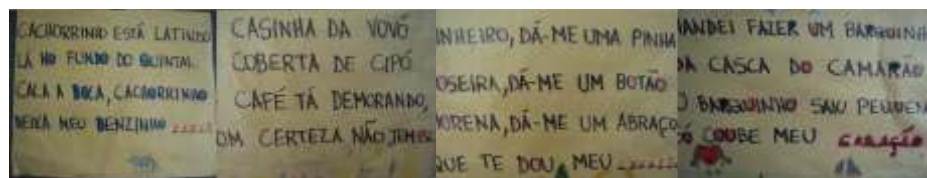 CACHORRINHO ESTÁ LATINDO
LÁ NO FUNDO DO QUINTAL
CALA A BOCA, CACHORRINHO
DEIXA MEU BENZINHO
CASINHA DA VOVÓ
COBERTA DE CIPÓ
CAFÉ TÁ DEMORANDO,
OM CERTEZA NÃO TEM
INHEIRO, DÁ-ME UMA PINHA
OSEIRA, DÁ-ME UM BOTÃO
MORENA, DÁ-ME UM ABRAÇO
QUE TE DOU MEU
MANDEI FAZER UM BARQUINH
DA CASCA DO CAMARÃO
O BARQUINHO SAIU PEQUEN
SÓ COUBE MEU CORAÇÃO